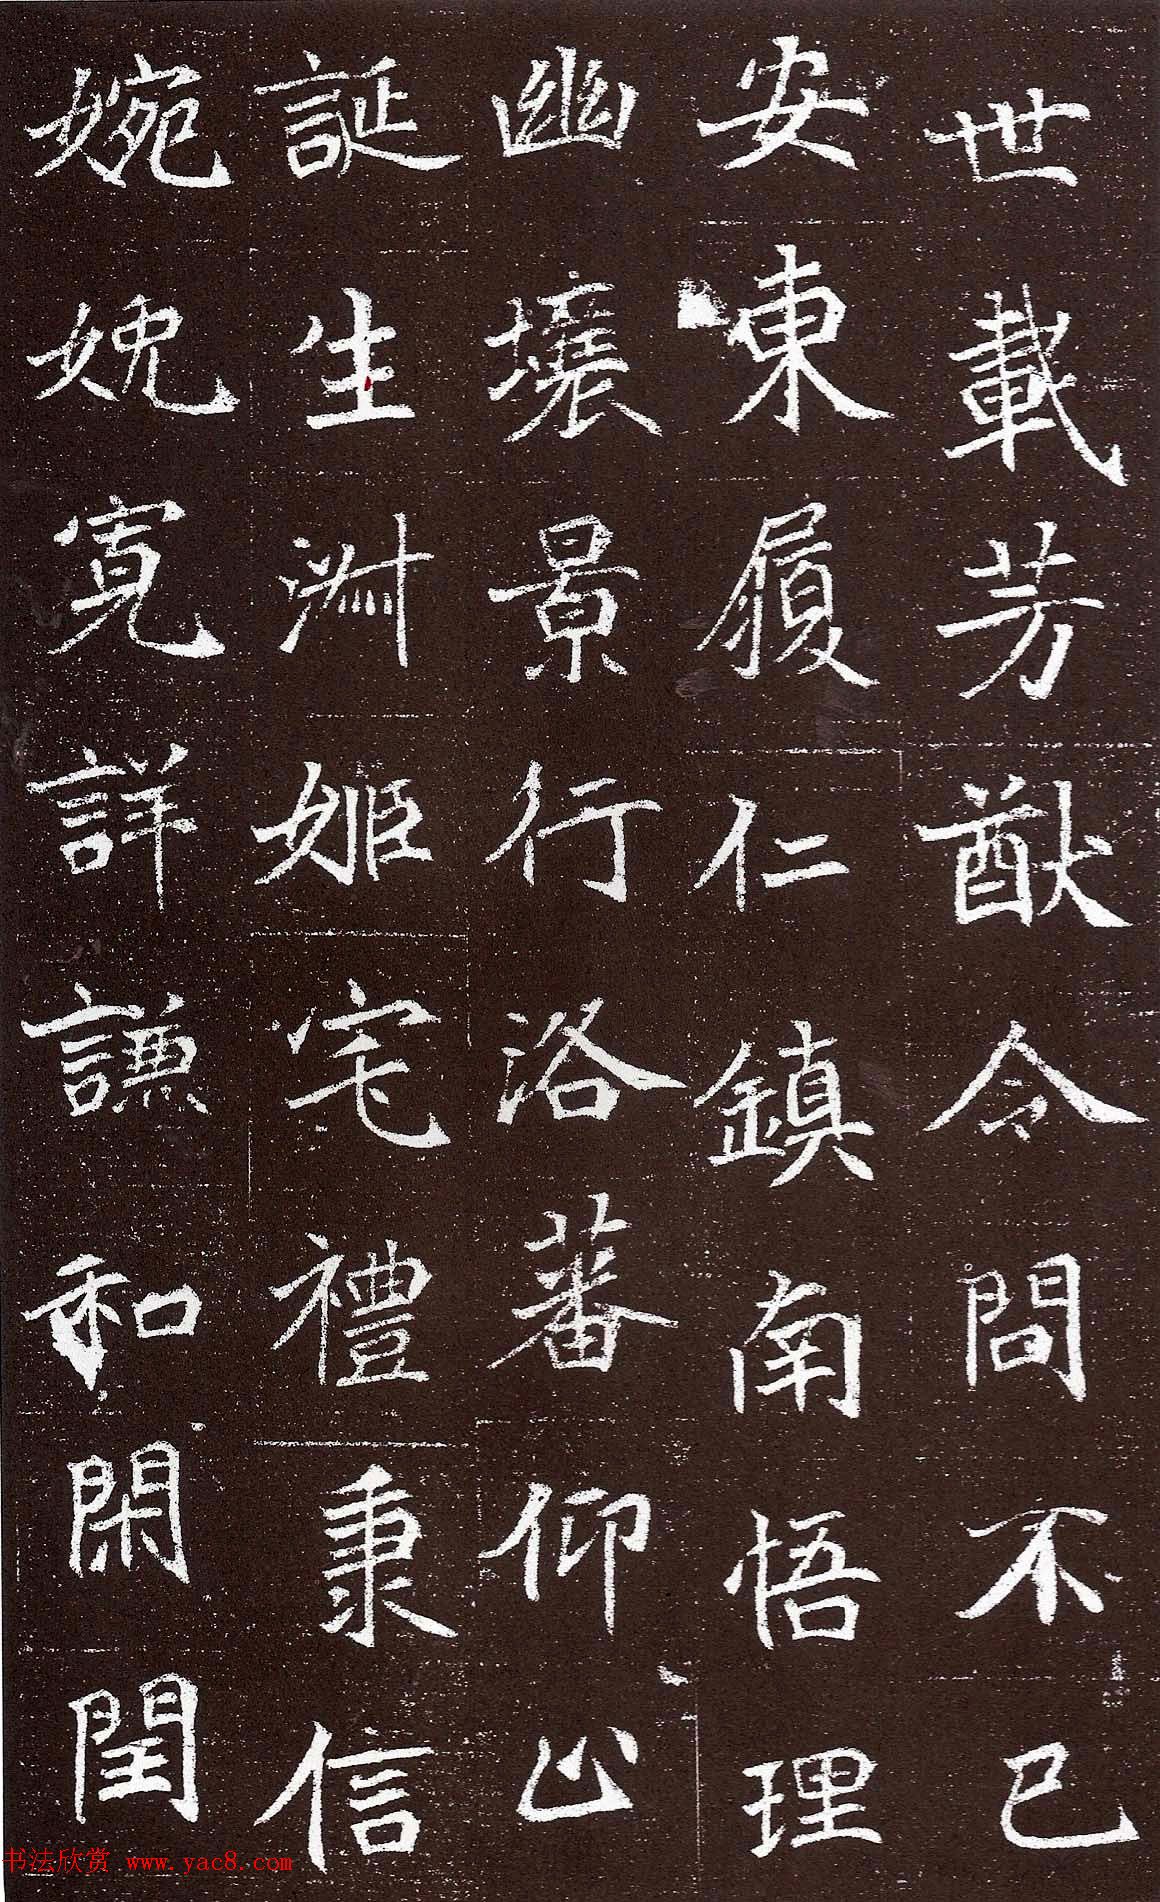 世載芳猷令問不已
安東履仁鎮南悟理
幽壤景行洛蕃仰止
誕生淵姬宅禮秉信
婉娩寬詳謙和閑閏
书法欣赏 www.yac8.com